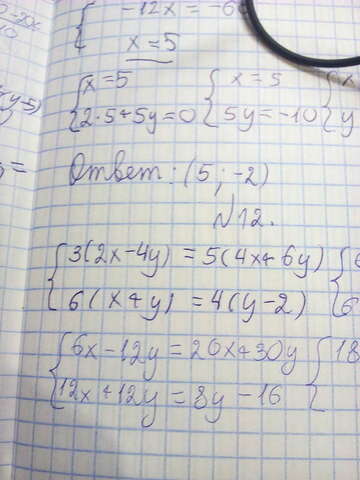 -12x = -6
x = 5
x = 5 x = 5
2·5+5y=0 5y=-10 y
Ответ: (5; -2)
№12.
3(2x-4y) = 5(4x+6y)
6(x+y) = 4(y-2) 6
6x-12y = 20x+30y 18
12x+12y = 8y-16